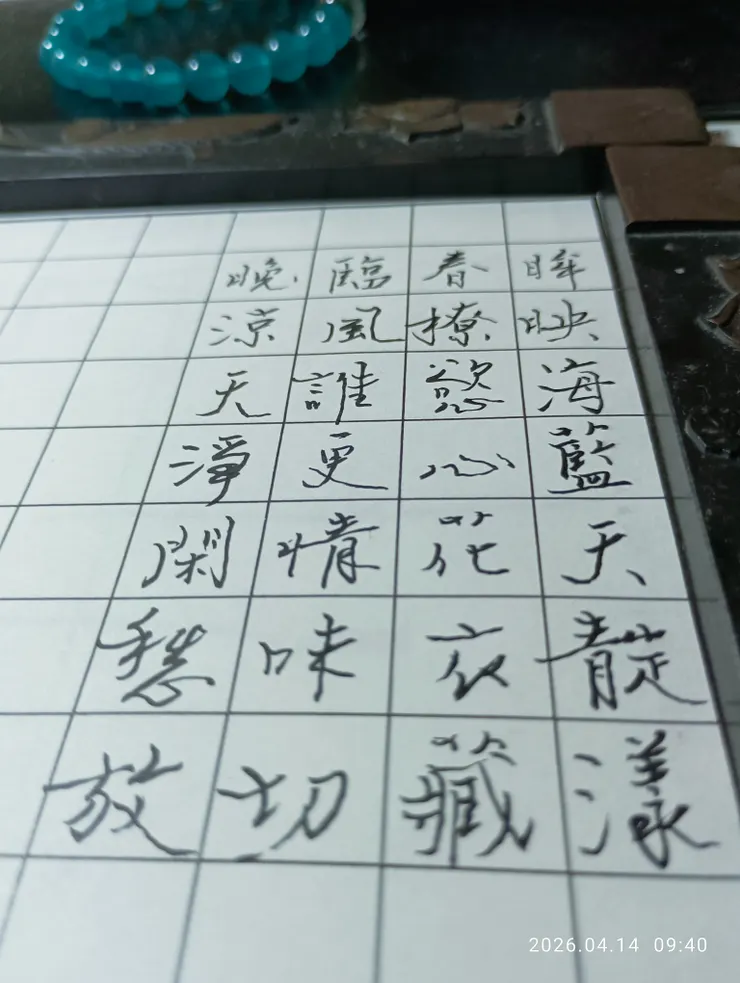 眸映海藍天靛漾
春撩慾心花衣藏
臨風誰更情味切
晚涼天淨閑愁放
2026.04.14 09:40